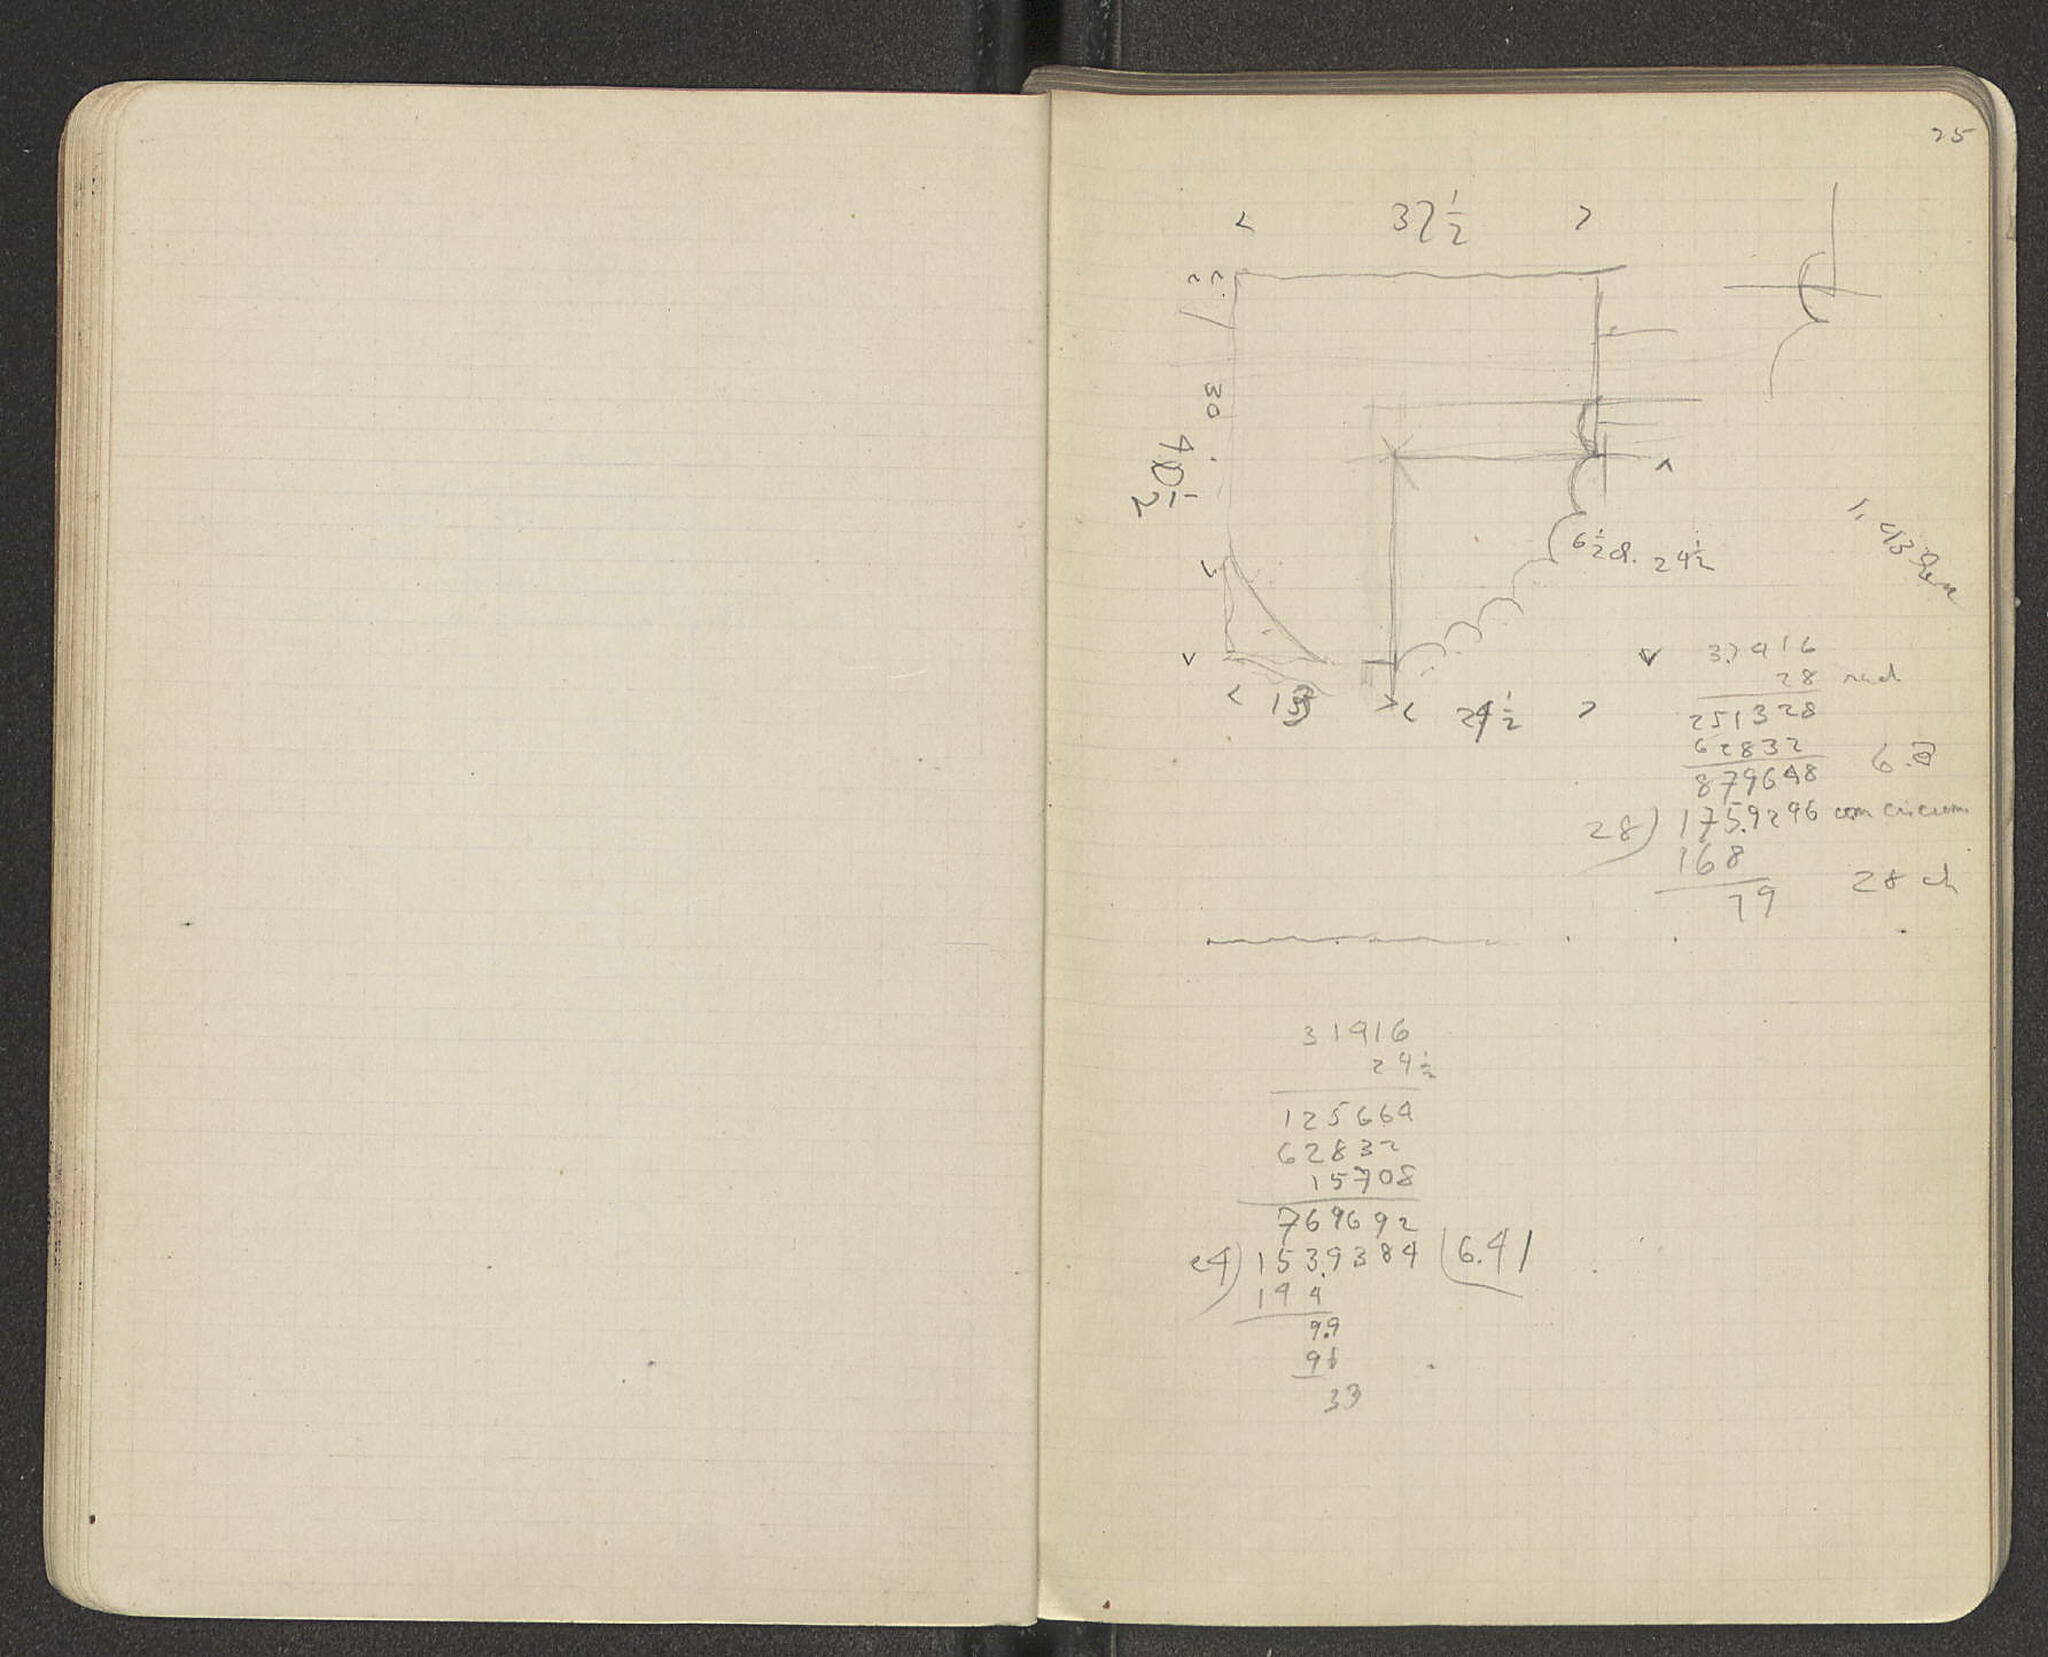 25
37 1/2
30
40 1/2
6 1/2 ch. 24 1/2
13
24 1/2
3.1416
28 rad
251328
62832
879648
28) 175.9296 com circum
168
79
6.
28 ch
31416
24 1/2
125664
62832
15708
769692
24) 153.9384 (6.41
144
9.9
96
33